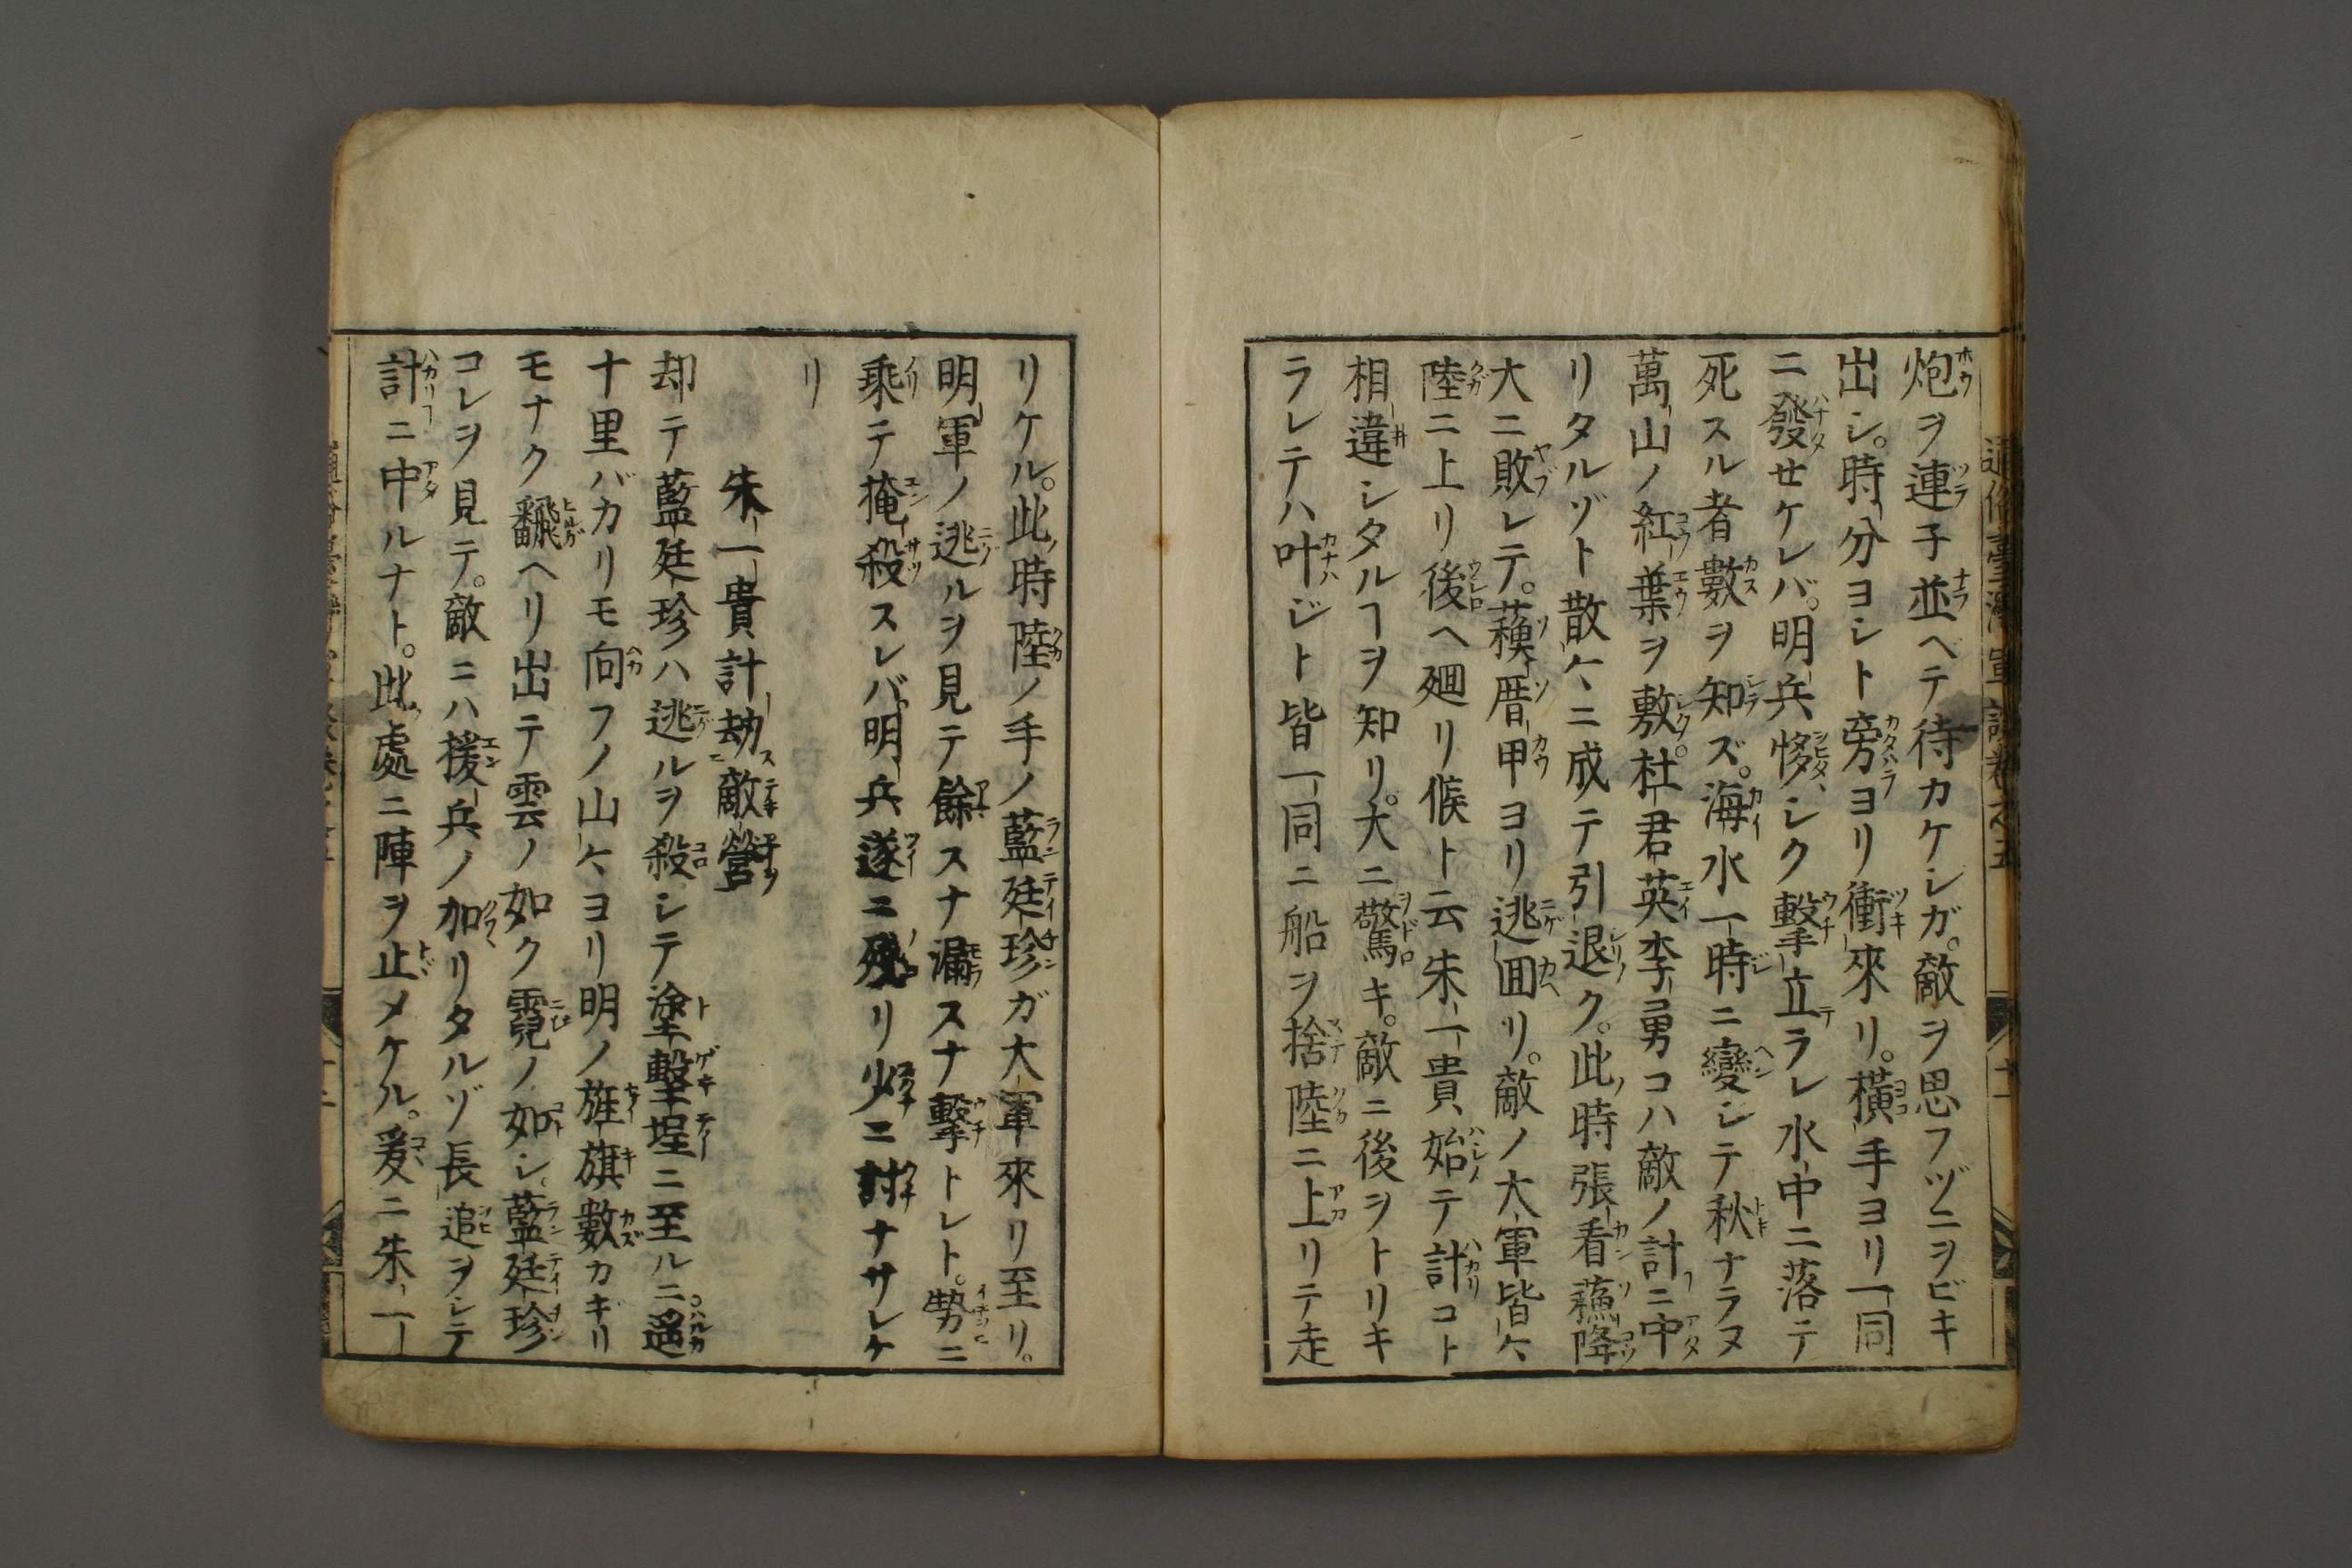 炮ヲ連子並ヘテ待カケシガ。敵ヲ思フヅニヲビキ
出シ。時分ヨシト旁ヨリ衝來リ。橫手ヨリ一同
ニ發せケレバ。明兵恀シク擊立ラレ水中ニ落テ
死スル者數ヲ知ズ。海水一時ニ變シテ秋ナラヌ
萬山ノ紅葉ヲ敷。杜君英李勇コハ敵ノ計ニ中
リタルゾト散〻ニ成テ引退ク。此時張看
大ニ敗レテ。厝甲ヨリ逃囬リ。敵ノ大軍皆〻
陸ニ上リ後ヘ廻リ候ト云朱一貴始テ計コト
相違シタルヿヲ知リ。大ニ驚キ。敵ニ後ヲトリキ
ラレテハ叶ジト皆一同ニ船ヲ捨陸ニ上リテ走
リケル。此時陸ノ手ノ藍廷珍ガ大軍來リ至リ。
明軍ノ逃ルヲ見テ餘スナ漏スナ擊トレト。勢ニ
乘テ掩殺スレバ明兵遂ニ殘リ少ニ討ナサレケ
リ
朱一貴計劫敵營
却テ藍廷珍ハ逃ルヲ殺シテ塗擊埕ニ至ルニ。遥
十里バカリモ向フノ山〻ヨリ明ノ旌旗數カギリ
モナク飜ヘリ出テ雲ノ如ク霓ノ如シ。藍廷珍
コレヲ見テ。敵ニハ援兵ノ加リタルゾ長追ヲシテ
計ニ中ルナト。此處ニ陣ヲ止メケル。爰ニ朱一